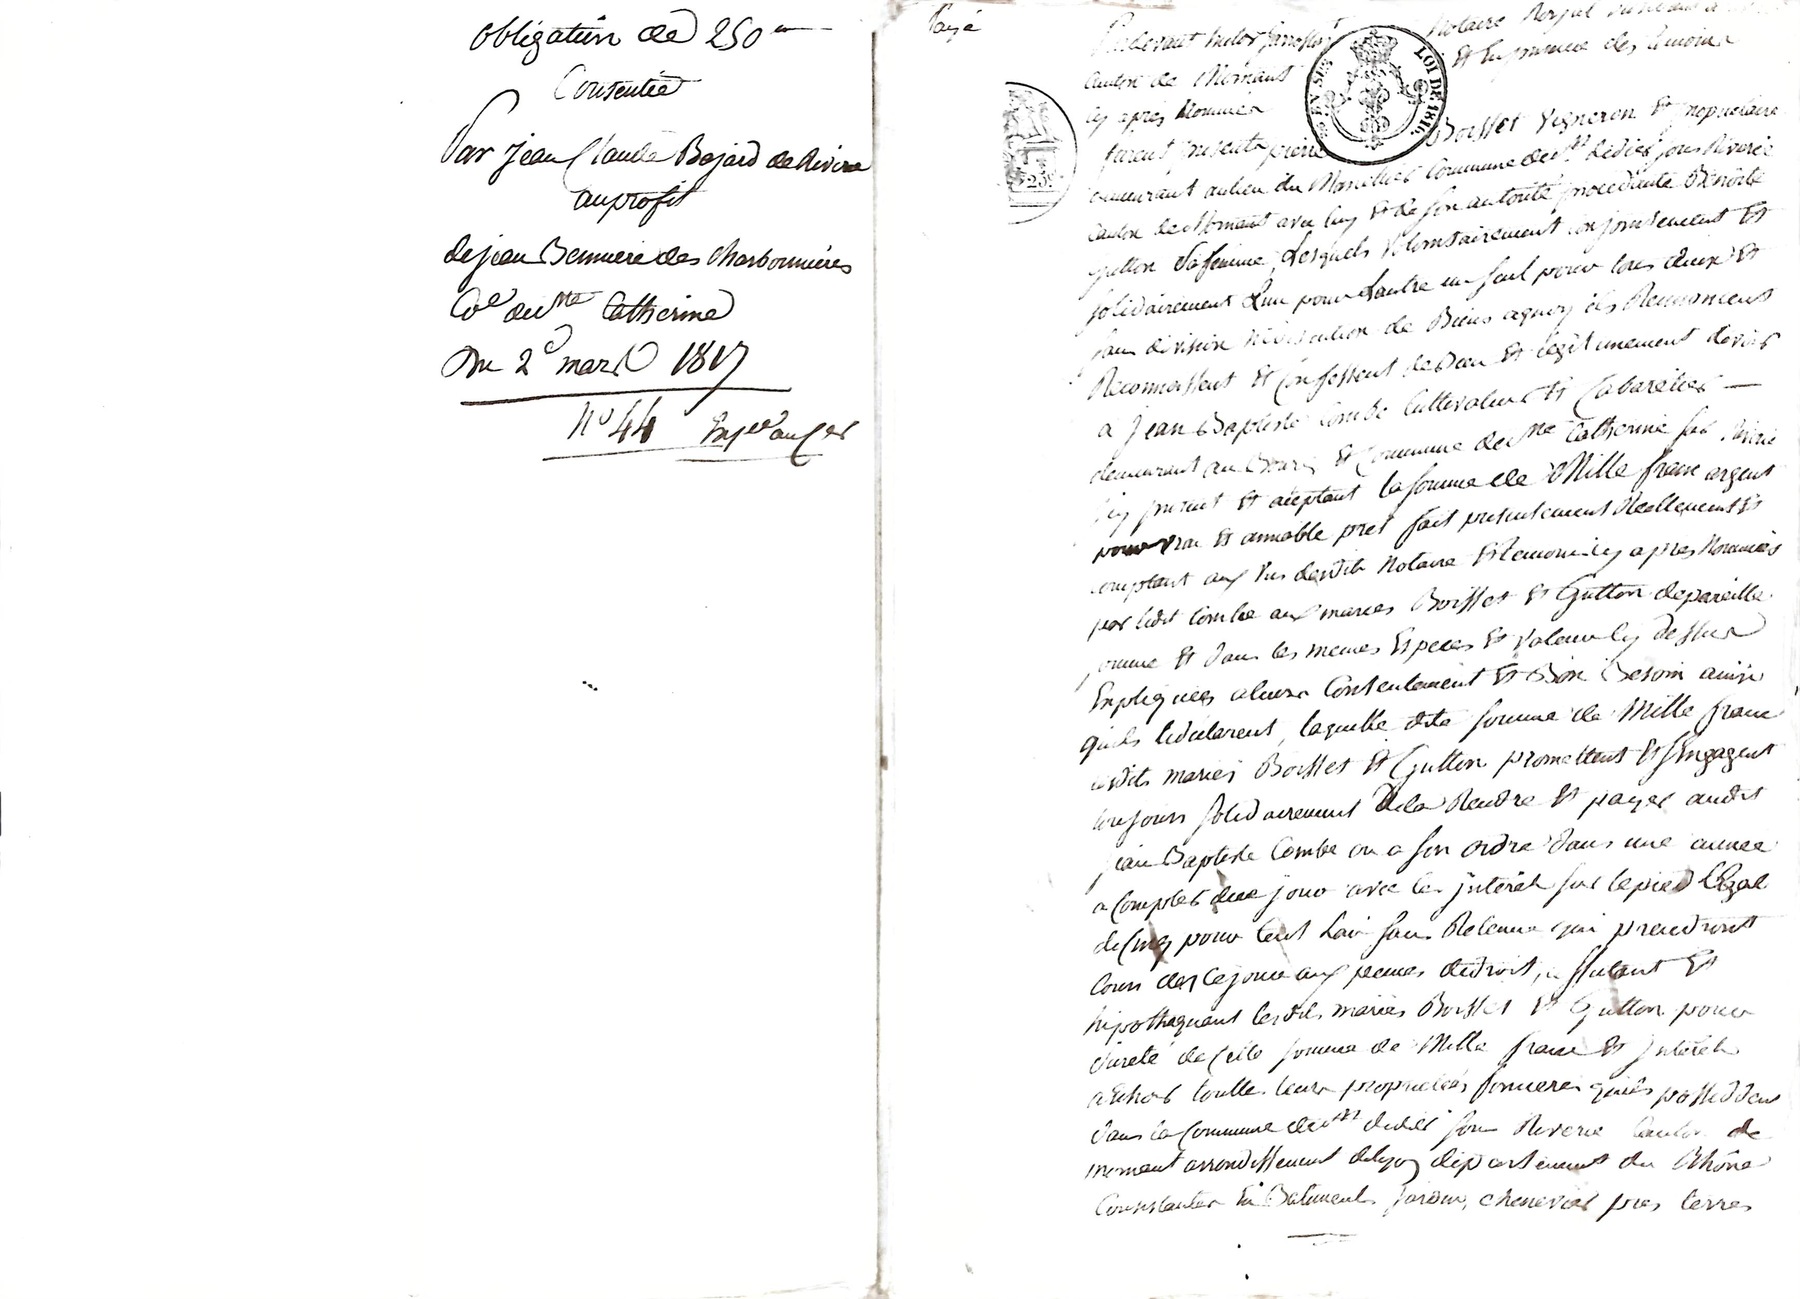 Obligation de 250
Consentie
Par jean Claude Bajard de Riverie
au profit
de jean Bennière des Charbonnières
Ce de Ste Catherine
Du 2e mars 1817
No 44
Payé
Pardevant notaire Royal
canton de Mornant et en presence des temoins
cy apres Nommés
furent presents pierre Boisset vigneron et proprietaire
demeurant au lieu du commune de St didier sous Riverie
canton de Mornant avec luy et de son autorité procedante Benoite
Gutton Sa femme, Lesquels volontairement conjointement et
solidairement L'un pour L'autre un seul pour tous deux et
sans division de Biens a quoy ils Renoncent
Reconnoissent et Confessent devoir et legitimement devoir
a Jean Baptiste Combe Cultivateur et Cabaretier
demeurant au Bourg et Commune de Ste Catherine sur Riverie
icy present et aceptant la somme de Mille franc argent
pour vrai et aimable pret fait presentement Reellement et
comptant aux vus desdits Notaire et temoins cy apres Nommés
par ledit Combe aux maries Boisset et Gutton de pareille
somme et dans les memes Especes et valeur cy dessus
Expliquées a leurs Contentement et Bon Besoin ainsi
quils le déclarent, laquelle dite somme de Mille franc
lesdits mariés Boisset et Gutton promettent et s'Engagent
toujours solidairement de la Rendre et payer audit
jean Baptiste Combe ou a son ordre dans une année
a Compter de ce jour avec les jnterets sur le pied Légal
de Cinq pour Cent L'an sans Retenue qui prendront
Cours des ce jour aux peines de droit, affectant et
hipothequant lesdits mariés Boisset et Gutton pour
sureté de Cette somme de Mille franc et jnterets
a Echoir toutes leurs propriétés foncieres quils possedent
dans la Commune de St didier sous Riverie Canton de
mornant arrondissement de lyon département du Rhône
Consistantes En Batiments jardin, chenevier pres terres
LOI DE 1816.